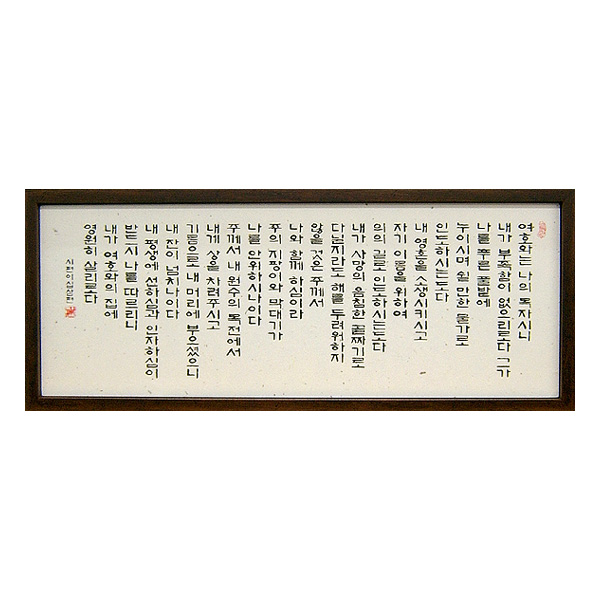 여호와는 나의 목자시니
내가 부족함이 없으리로다 그가
나를 푸른 풀밭에
누이시며 쉴 만한 물가로
인도하시는도다
내 영혼을 소생시키시고
자기 이름을 위하여
의의 길로 인도하시는도다
내가 사망의 음침한 골짜기로
다닐지라도 해를 두려워하지
않을 것은 주께서
나와 함께 하심이라
주의 지팡이와 막대기가
나를 안위하시나이다
주께서 내 원수의 목전에서
내게 상을 차려주시고
기름으로 내 머리에 부으셨으니
내 잔이 넘치나이다
내 평생에 선하심과 인자하심이
반드시 나를 따르리니
내가 여호와의 집에
영원히 살리로다
시편이십삼편